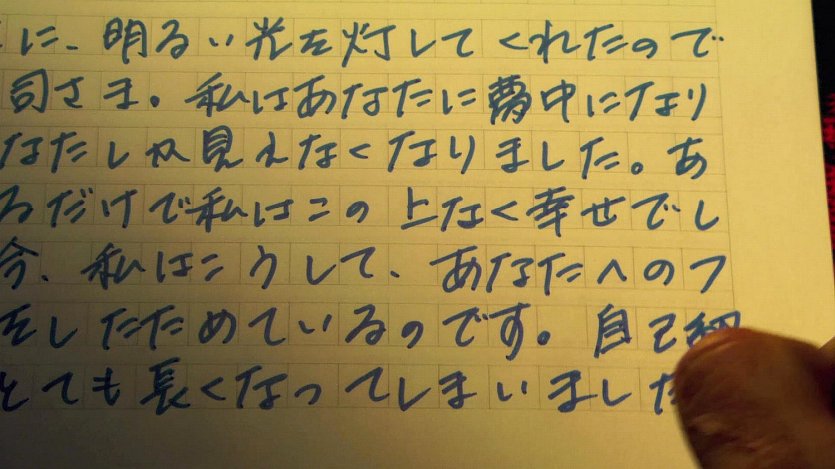 に、明るい光を灯してくれたので
司さま。私はあなたに夢中になり
なたしか見えなくなりました。あ
るだけで私はこの上なく幸せでし
今、私はこうして、あなたへのフ
をしたためているのです。自己紹
とても長くなってしまいました